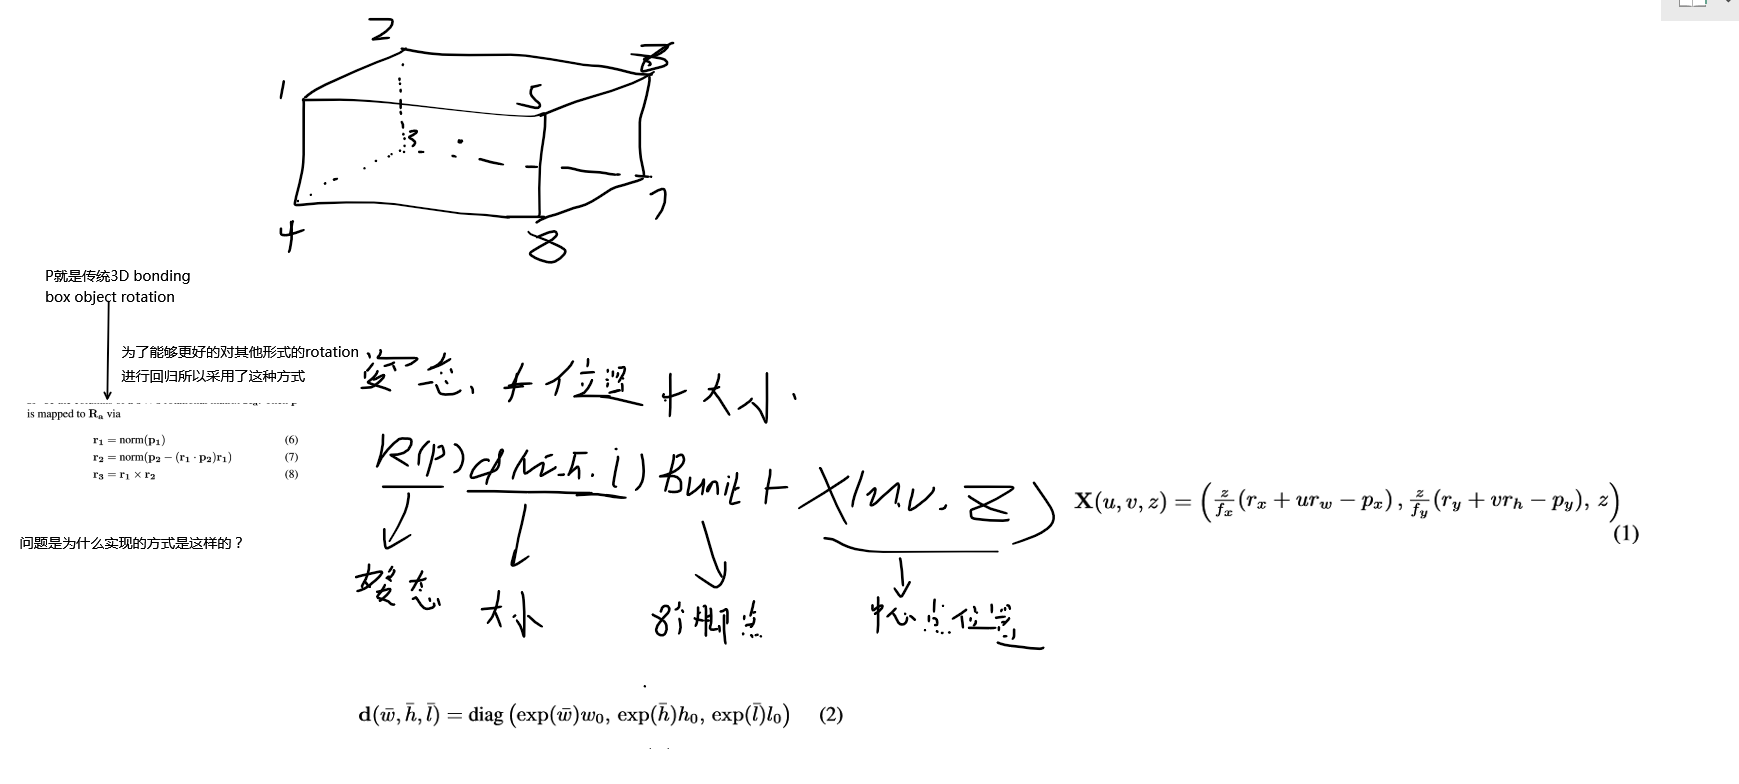 2
1
5
3
4
7
8
P就是传统3D bonding
box object rotation
为了能够更好的对其他形式的rotation
进行回归所以采用了这种方式
is mapped to Rₐ via
r₁ = norm(p₁) (6)
r₂ = norm(p₂ − (r₁ · p₂)r₁) (7)
r₃ = r₁ × r₂ (8)
问题是为什么实现的方式是这样的？
姿态、+ 位置 + 大小.
R(p) d(w̄. h̄. l̄) Bunit + X(u.v. z)
姿态
大小
8个脚点
中心点位置
X(u, v, z) = (z/fₓ (rₓ + ur_w − pₓ), z/f_y (r_y + vr_h − p_y), z)
(1)
d(w̄, h̄, l̄) = diag (exp(w̄)w₀, exp(h̄)h₀, exp(l̄)l₀) (2)